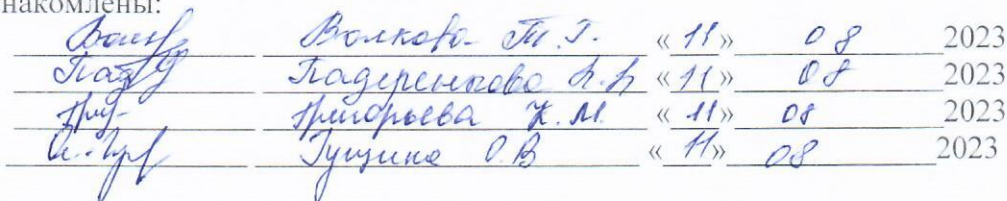 накомлены:
Волкова Т. Г. « 11 » 08 2023
« 11 » 08 2023
Григорьева К. М. « 11 » 08 2023
Гущина О. В « 11 » 08 2023